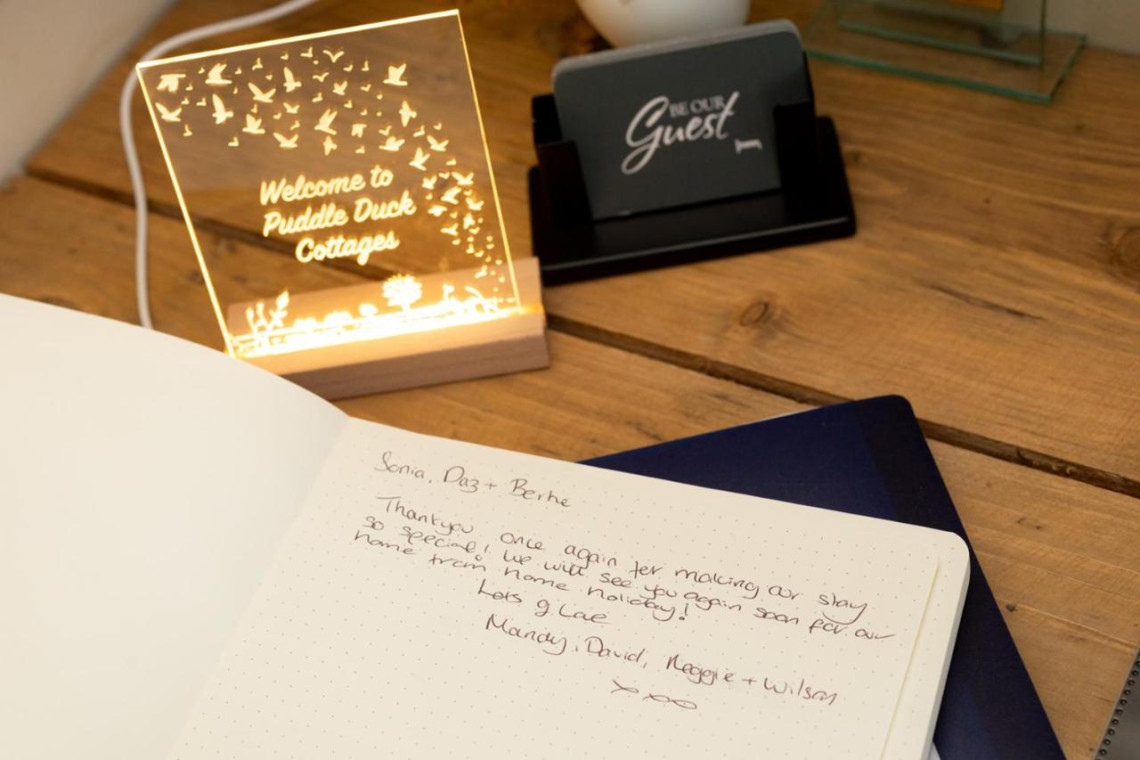 Welcome to
Puddle Duck
Cottages
BE OUR
Guest
Sonia, Daz + Bertie
Thankyou once again for making our stay
so special! We will see you again soon for our
home from home holiday!
Lots of Love
Mandy, David, Reggie + Wilson
xxx